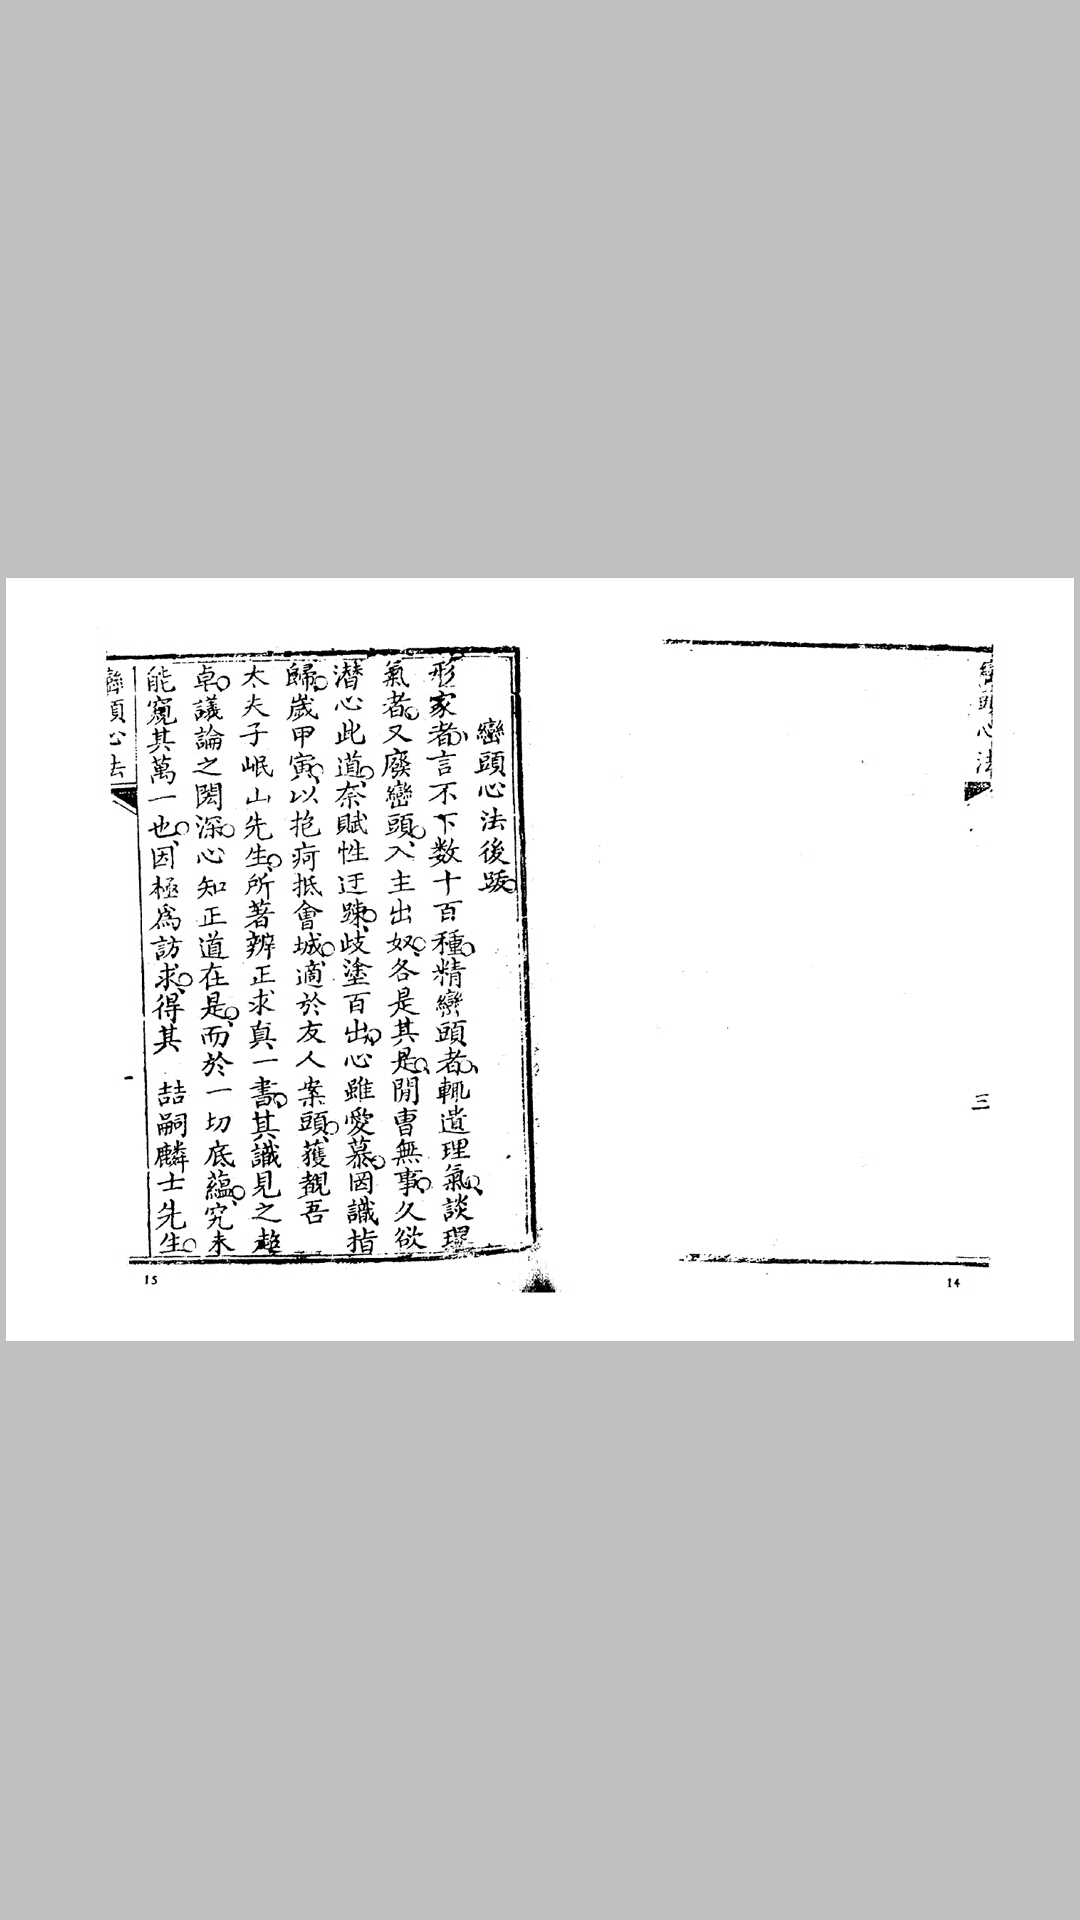 巒頭心法
三
14
巒頭心法後跋
形家者言不下数十百種精巒頭者輒遺理氣談理
氣者又廢巒頭入主出奴各是其是閒曹無事久欲
潜心此道奈賦性迂踈歧塗百出心雖愛慕罔識指
歸歲甲寅以抱疴抵會城適於友人案頭獲觀吾
太夫子岷山先生所著辨正求真一書其識見之超
卓議論之閎深心知正道在是而於一切底蘊究未
能窺其萬一也因極爲訪求得其 喆嗣麟士先生
巒頭心法
15